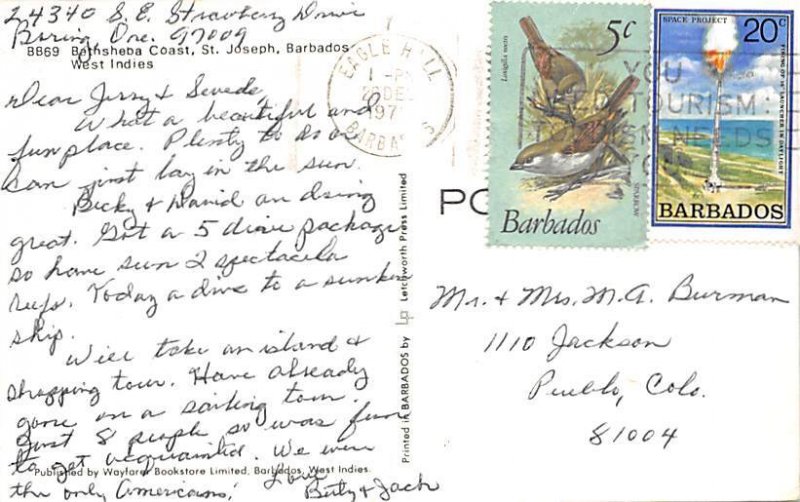 24340 S.E. Strawberry Drive
Boring Ore. 97009
BB69 Bathsheba Coast, St. Joseph, Barbados
West Indies
Dear Jerry &
What a beautiful and
fun place. Plenty to do or
can just lay in the sun.
Becky & David are diving
great. Got a 5 dive package
so have seen 2 spectacular
reefs. Today a dive to a sunken
ship.
Will take an island &
shopping tour. Have already
gone on a sailing tour.
Just 8 people so was fun
to get acquainted. We were
the only Americans!
Love
Betty & Jack
Published by Wayfarer Bookstore Limited, Barbados, West Indies.
Printed in BARBADOS by Lp Letchworth Press Limited
EAGLE HALL
1 - PM
DEC
197
BARBADOS
5c
Loxigilla noctis
SPARROW
Barbados
SPACE PROJECT
20c
FIRING OF 16" LAUNCHER IN DAYLIGHT
BARBADOS
YOU
NEED TOURISM:
TOURISM NEEDS
YOU
PO
Mr. & Mrs. M.A. Burman
1110 Jackson
Pueblo, Colo.
81004